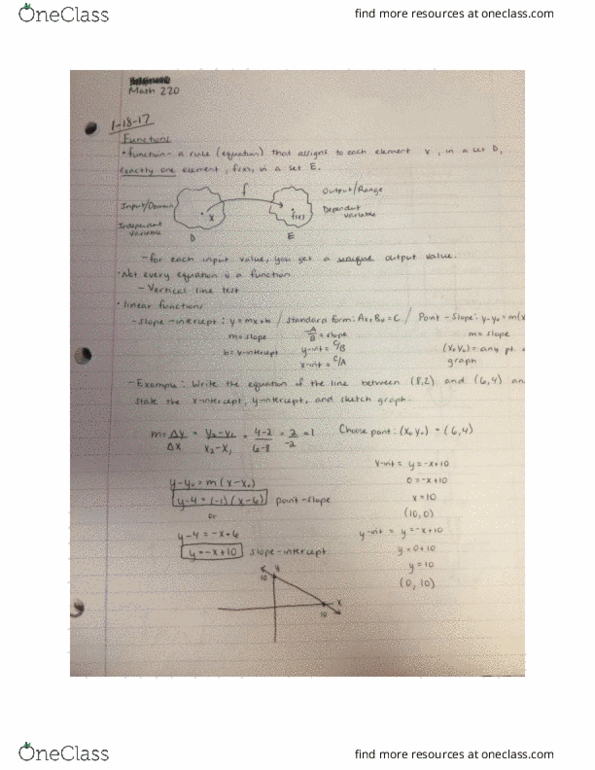 OneClass
find more resources at oneclass.com
Math 220
1-18-17
Functions
• function - a rule (equation) that assigns to each element x, in a set D,
exactly one element, f(x), in a set E.
f
Input/Domain
Output/Range
x
f(x)
Independent variable
Dependent variable
D
E
- for each input value, you get a output value.
• Not every equation is a function
- Vertical line test
• linear functions
- slope-intercept: y=mx+b / standard form: Ax+By=C / Point-Slope: y-y₀=m(x
m=slope
-A/B = slope
m= slope
b= y-intercept
y-int = C/B
(x₀ y₀) = any pt.
x-int = C/A
graph
- Example: Write the equation of the line between (8,2) and (6,4) an
state the x-intercept, y-intercept, and sketch graph.
m= Δy/Δx = y₂-y₁/x₂-x₁ = 4-2/6-8 = 2/-2 = 1
Choose point: (x₀ y₀) = (6,4)
y-y₀=m(x-x₀)
x-int = y=-x+10
y-4=(-1)(x-6) point-slope
0=-x+10
or
x=10
(10,0)
y-4=-x+6
y-int = y=-x+10
y=-x+10 slope-intercept
y=0+10
y=10
(0,10)
y
10
x
10
OneClass
find more resources at oneclass.com